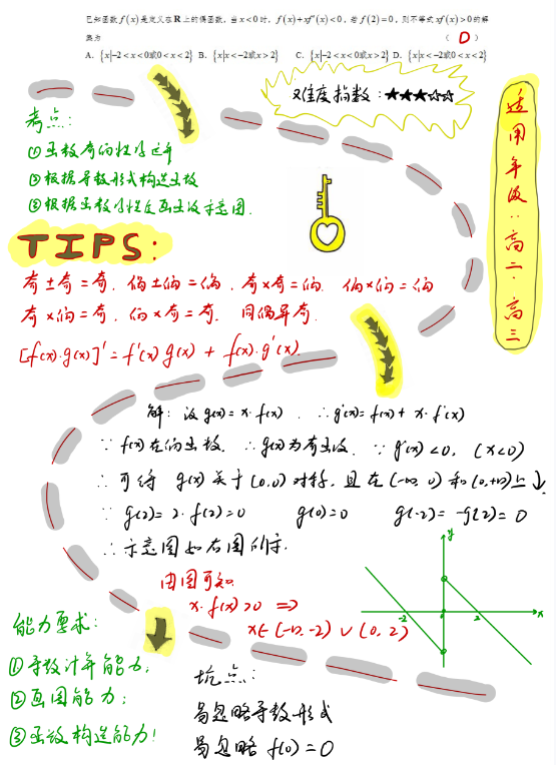 已知函数f(x)是定义在R上的偶函数，当x<0时，f(x)+xf'(x)<0，若f(2)=0，则不等式xf(x)>0的解
集为 ( D )
A．{x|-2<x<0或0<x<2} B．{x|x<-2或x>2} C．{x|-2<x<0或x>2} D．{x|x<-2或0<x<2}
难度指数：★★★☆☆
适用年级：高二·高三
考点：
①函数奇偶性
②根据导数形式构造函数
③根据函数性质画函数示意图.
TIPS:
奇±奇=奇. 偶±偶=偶. 奇×奇=偶. 偶×偶=偶
奇×偶=奇. 偶×奇=奇. 同偶异奇.
[f(x)·g(x)]'=f'(x)g(x)+f(x)·g'(x).
解：设g(x)=x·f(x). ∴g'(x)=f(x)+x·f'(x)
∵f(x)在偶函数. ∴g(x)为奇函数. ∵g'(x)<0. (x<0)
∴可得 g(x)关于(0,0)对称，且在(-∞,0)和(0,+∞)上↓.
∵g(2)=2·f(2)=0 g(0)=0 g(-2)=-g(2)=0
∴示意图如右图所示.
由图可知.
x·f(x)>0 ⇒
x∈(-∞,-2)∪(0,2)
y
-2 0 2 x
能力要求：
①导数计算能力;
②画图能力;
③函数构造能力!
坑点：
易忽略导数形式
易忽略f(0)=0